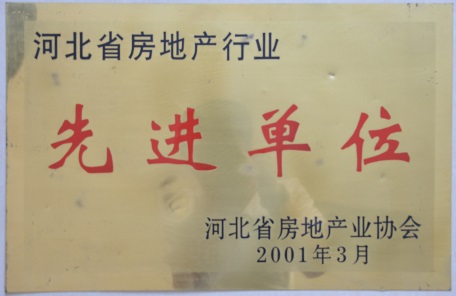 河北省房地产行业
先进单位
河北省房地产业协会
2001年3月